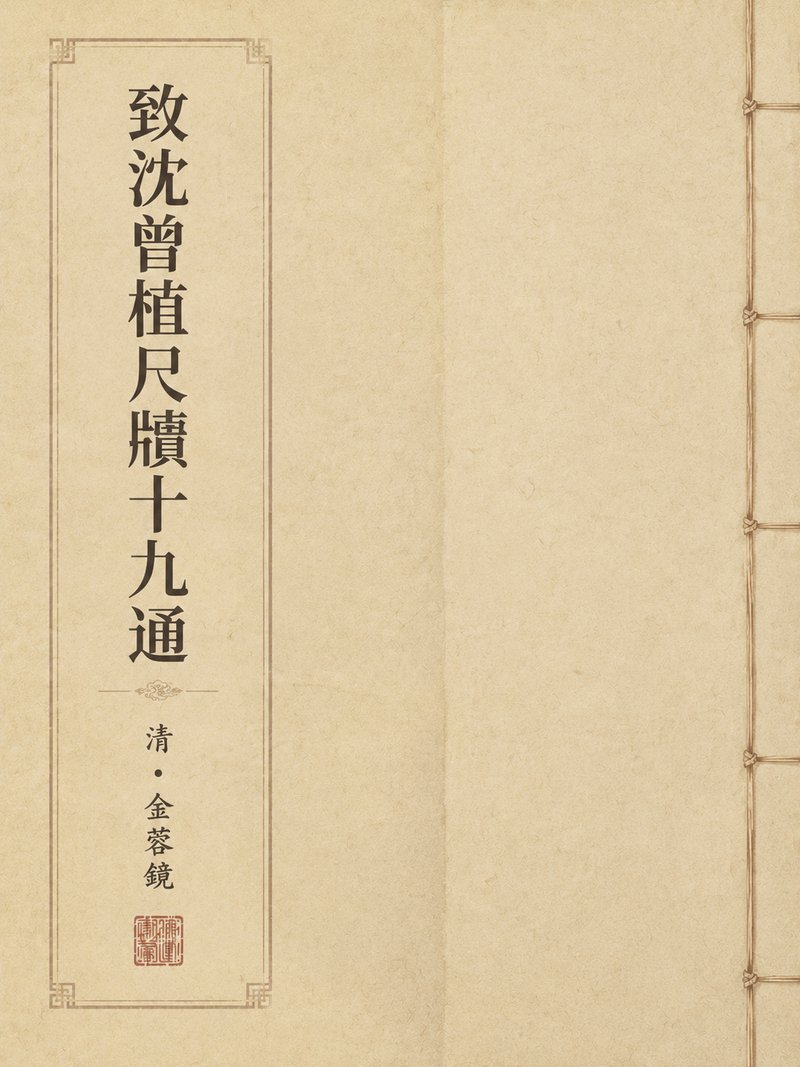 致沈曾植尺牘十九通
清·金蓉鏡